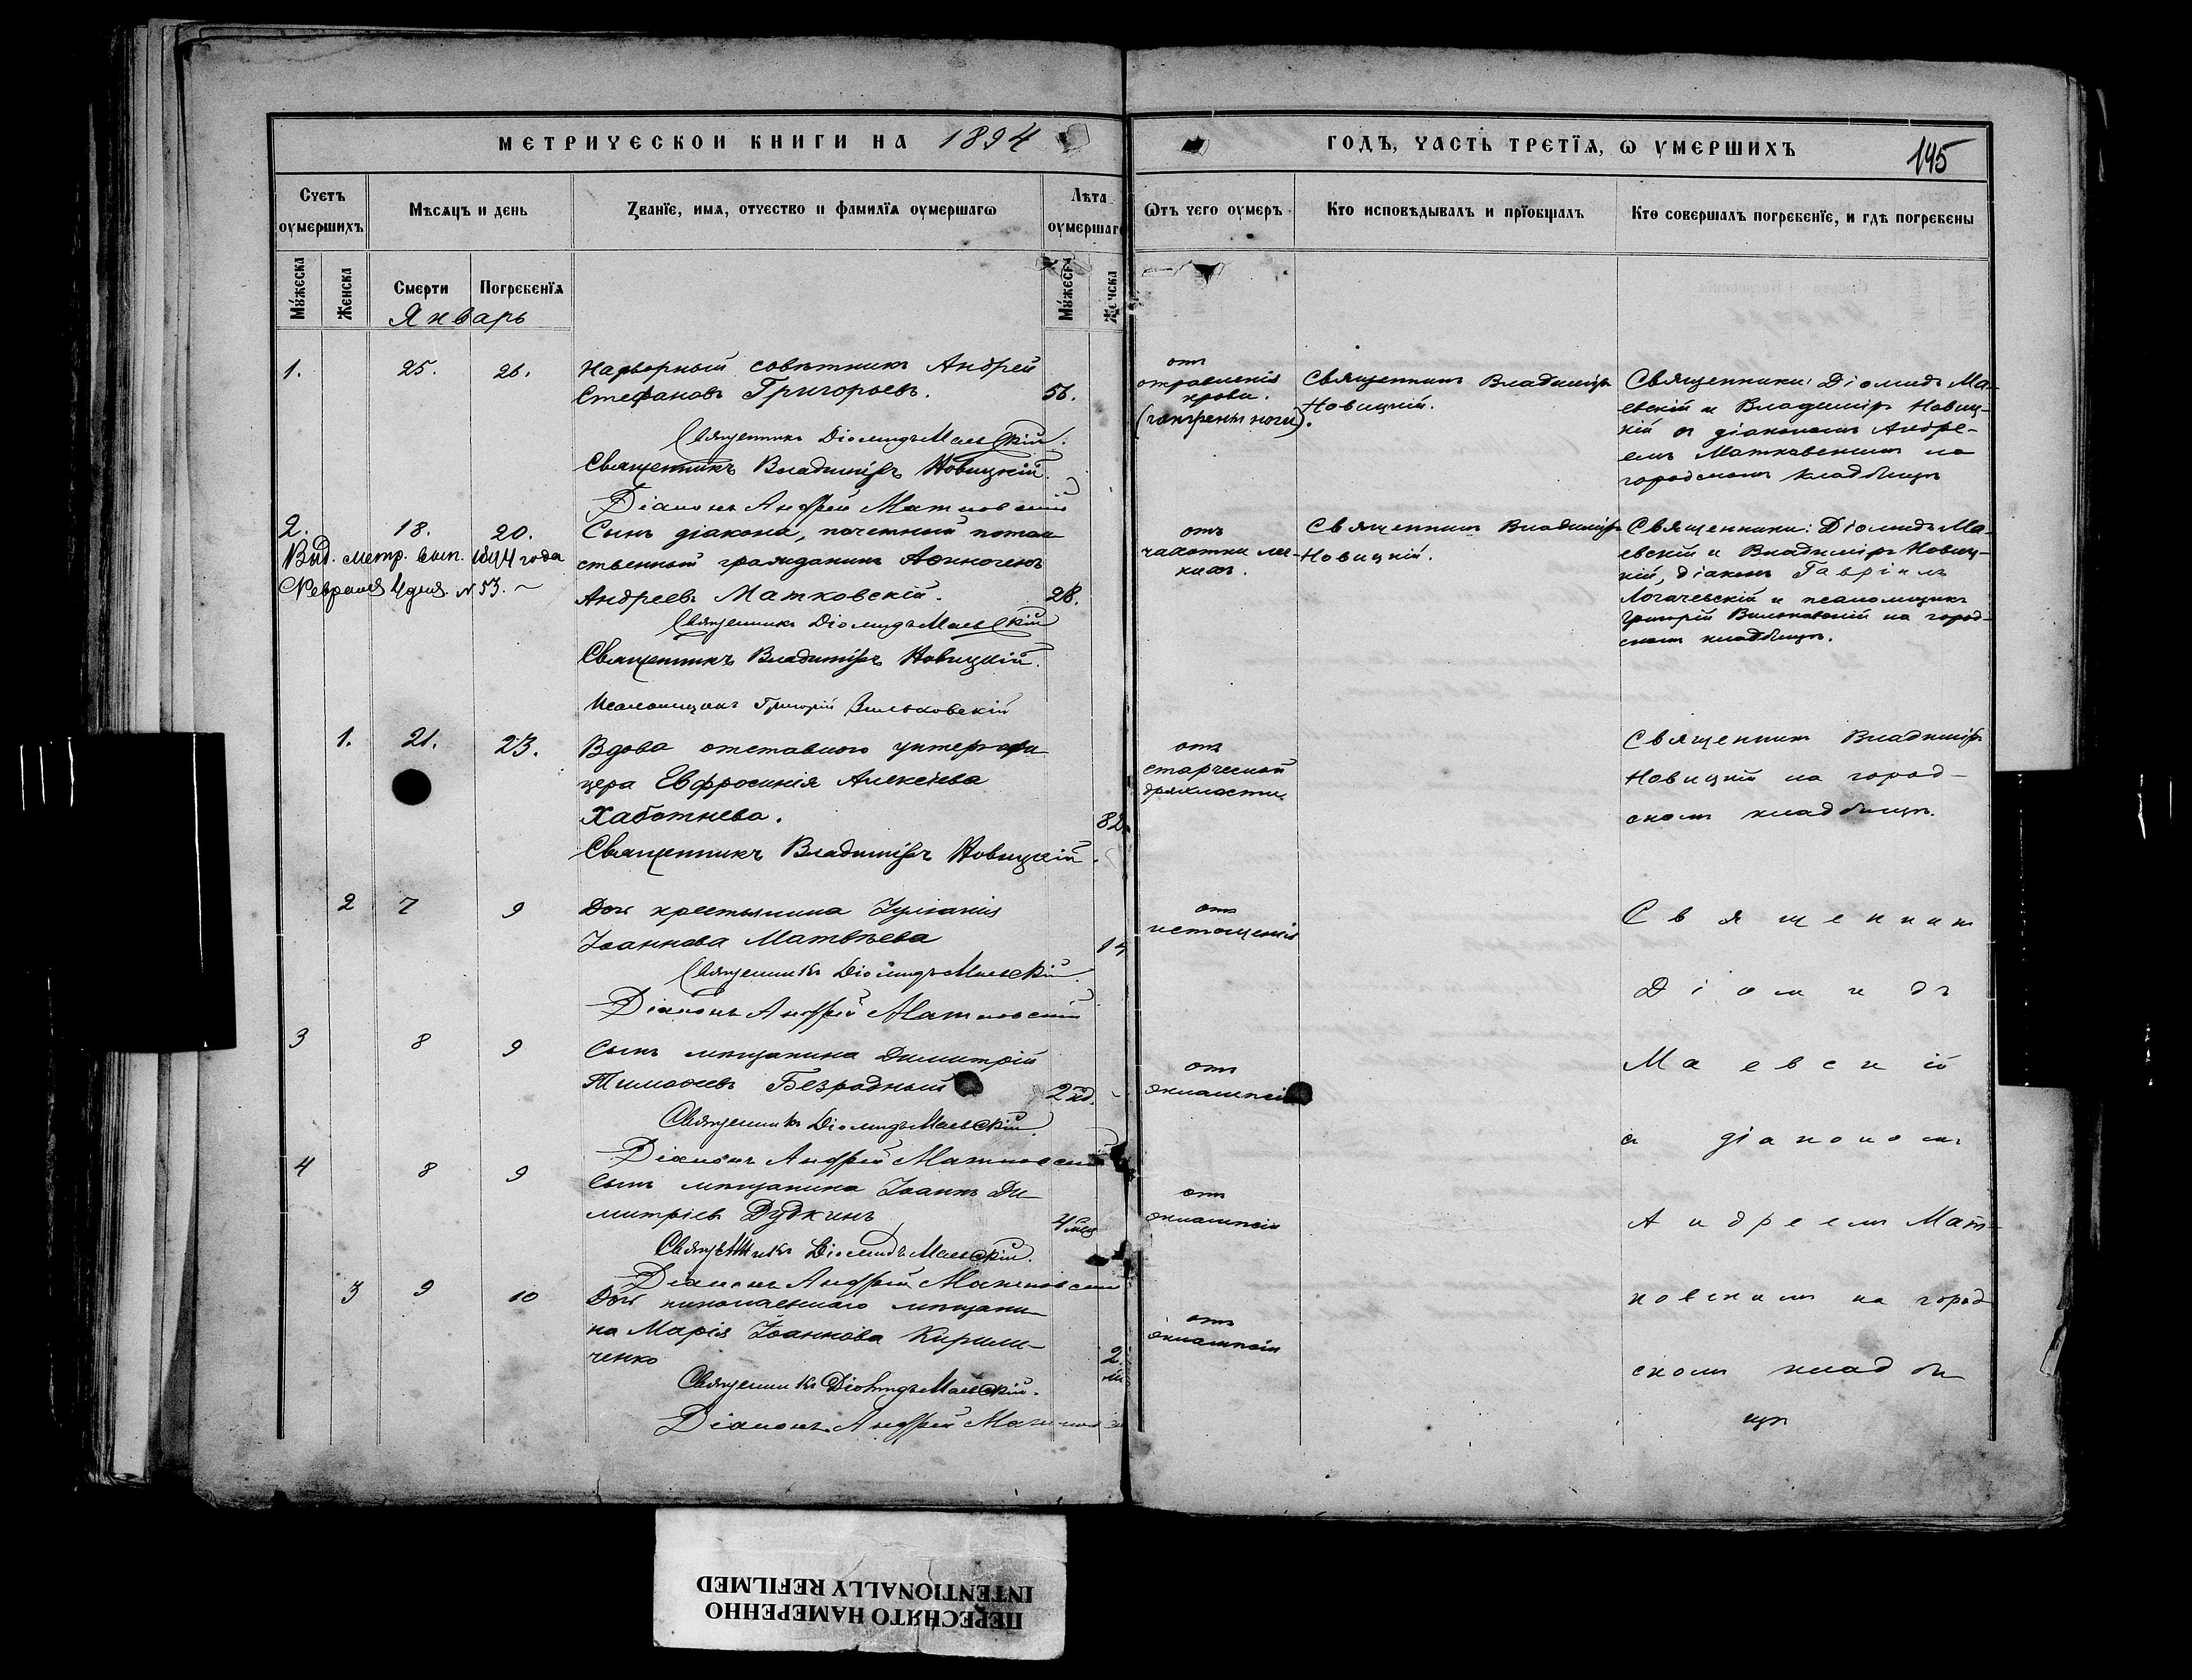 МЕТРИЧЕСКОЙ КНИГИ НА 1894
ГОДЪ, ЧАСТЬ ТРЕТІЯ, Ѡ УМЕРШИХЪ
195
Счетъ оумершихъ
Мѣсяцъ и день
Званіе, имя, отчество и фамилія оумершагѡ
Лѣта оумершагѡ
Ѡтъ чего оумеръ
Кто исповѣдывалъ и пріобщалъ
Кто совершалъ погребеніе, и гдѣ погребены
Мужеска
Женска
Смерти
Погребенія
Мужеска
Женска
Январь
1. 25. 26.
Надворный совѣтникъ Андрей
Стефановъ Григорьевъ. 56.
Священникъ Діомидъ Маевскій.
Священникъ Владиміръ Новицкій.
Діаконъ Андрей Матковскій
отъ
отравленія
крови.
(гангрены ноги).
Священникъ Владиміръ
Новицкій.
Священники: Діомидъ Ма-
евскій и Владиміръ Новиц-
кій съ діакономъ Андре-
емъ Матковскимъ на
городскомъ кладбищѣ
2. 18. 20.
Выд. метр. вып. 1894 года
Февраля 4 дня. № 53.
Сынъ діакона, почетный потом
ственный гражданинъ Аѳиногенъ
Андреевъ Матковскій. 28.
Священникъ Діомидъ Маевскій
Священникъ Владиміръ Новицкій.
Псаломщикъ Григорій Вильковскій
отъ
чахотки лег-
кихъ.
Священникъ Владиміръ
Новицкій.
Священники: Діомидъ Ма-
евскій и Владиміръ Новиц-
кій, діаконъ Гавріилъ
Логачевскій и псаломщикъ
Григорій Вильковскій на город-
скомъ кладбищѣ.
1. 21. 23.
Вдова отставного унтеръ-офи
цера Евфросинія Алексѣева
Хаботнева. 82.
Священникъ Владиміръ Новицкій.
отъ
старческой
дряхлости
Священникъ Владиміръ
Новицкій на город-
скомъ кладбищѣ.
2 7 9
Дочь крестьянина Іуліанія
Іоаннова Матвѣева
Священникъ Діомидъ Маевскій.
Діаконъ Андрей Матковскій
отъ
истощенія
Священникъ
Діомидъ
Маевскій
съ діакономъ
Андреемъ Мат-
ковскимъ на город
скомъ кладби
щѣ
3 8 9
Сынъ мѣщанина Димитрій
Тимоѳеевъ Безродный
Священникъ Діомидъ Маевскій.
Діаконъ Андрей Матковскій
отъ
эклампсіи
4 8 9
Сынъ мѣщанина Іоаннъ Ди-
митріевъ Дудкинъ 4 мѣс
Священникъ Діомидъ Маевскій.
Діаконъ Андрей Матковскій
отъ
эклампсіи
3 9 10
Дочь николаевскаго мѣщани-
на Марія Іоаннова Кирили-
ченко 2
Священникъ Діомидъ Маевскій.
Діаконъ Андрей Матковскій
отъ
эклампсіи
ПЕРЕСНЯТО НАМЕРЕННО
INTENTIONALLY REFILMED